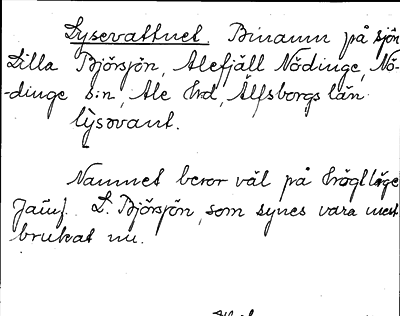 Lysevattnet Binamn på sjön
Lilla Björsjön, Alefjäll Nödinge, Nö-
-dinge s:n, Ale hrd, Älfsborgs län
lỳsəvant.
Namnet beror väl på höglläge
Jämf. L. Björsjön, som synes vara mest
brukat nu.